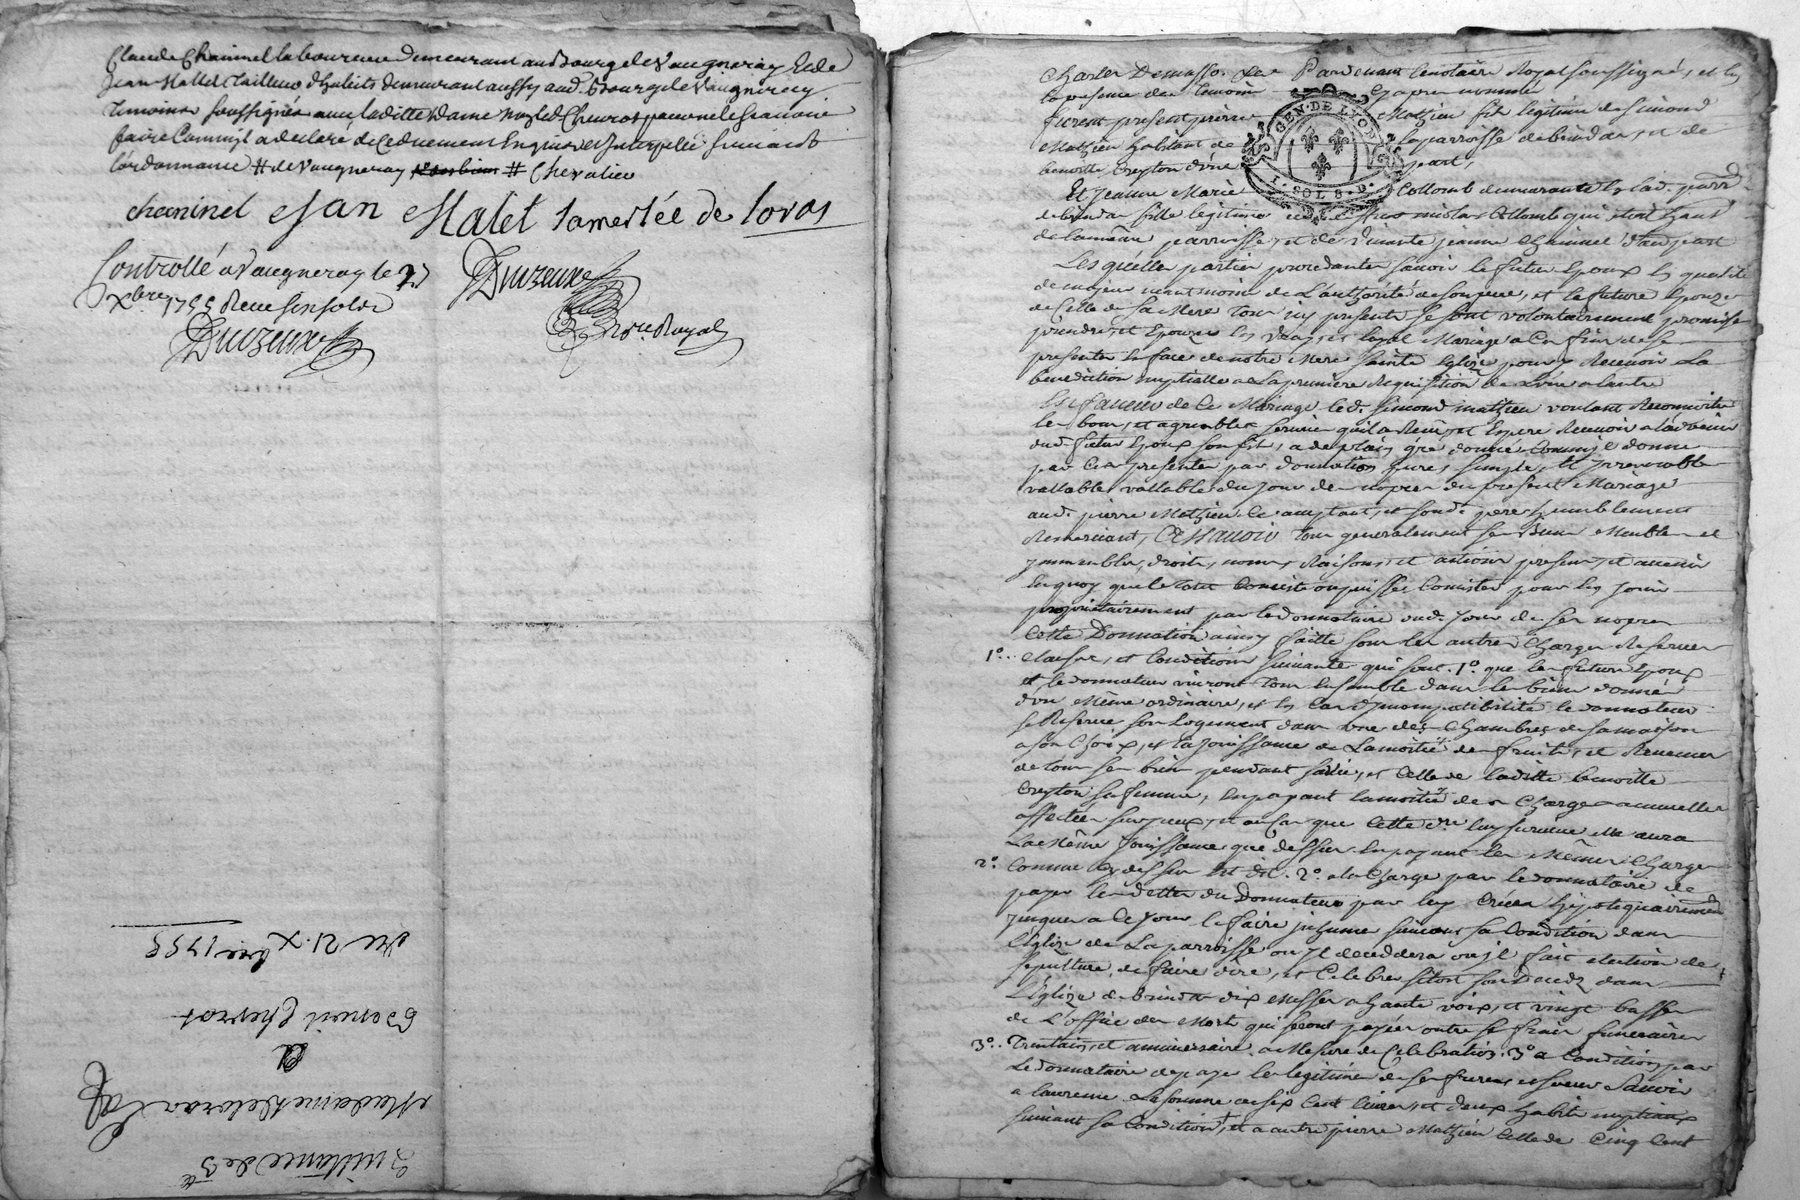 Claude Chaininel laboureur demeurant au Bourg de Vaugneray et de
Jean Mallet Tailleur d'habits demeurant aussy aud. Bourg de Vaugneray
Temoins soussignés avec laditte Dame non led Chevrot pour ne le scavoir
faire Comm'il a declaré de ce duement enquis et Interpellé suivant
l'ordonnance # de Vaugneray # Chevalier
chaninel Jean Malet Lamerlée de loras
Controllé a Vaugneray le 27
Xbre 1755 Receu six sols
Duvzeux
Duvzeux
No.re Royal
Du 21. Xbre 1755
Benoit Chevrot
a
Madame de Loras
Quittance de 3
GEN. DE LYON
I. SOL 8. D.
Pardevant le notaire Royal soussigné, et en
la presence des temoins cy apres nommés
furent presents pierre Mathieu fils legitime de Simond
Mathieu habitant de la parroisse de brindas, et de
benoitte Creyton d'une part,
Et Jeanne Marie Collomb demeurante en lad. parr.
de brindas fille legitime de feu nicolas Collomb qui etoit hant
de la même parroisse, et de vivante jeanne Chaininel d'autre part
Lesquelles parties procedantes scavoir le futur Epoux en qualité
de majeur neantmoins de L'authorité de son pere, et la future Epouze
de Celle de sa Mere tous icy presents se sont volontairement promis
prendre, et Epouzer en vray et loyal Mariage a Cette fin de se
presenter en face de notre Mere Sainte Eglize pour y Recevoir La
benediction nuptialle a La premiere Requisition de L'une a lautre
En faveur de Ce Mariage led. Simond mathieu voulant Reconnoitre
les bons, et agreables services qu'il a Receu, et Espere Recevoir a l'avenir
dud. futur Epoux son fils, a de plain gré donné Comm'il donne
par Ces presentes par donnation pure, simple, et Irrevocable
vallable vallable du Jour de nopces du present Mariage
aud. pierre Mathieu Ce acceptant, et sond. pere humblement
Remerciant, Ascavoir tous generalement ses Biens Meubles et
Immeubles, droits, noms, Raisons, et actions presents, et avenir
En quoy que le tout Consiste ou puisse Consister pour en Jouir
proprietairement par le donnataire dud. Jour de ses nopces
Cette Donnation ainsy faitte sous les autres Charges Reserves
1°. clauses, et Conditions suivantes qui sont. 1°. que les futurs Epoux
et le donnateur vivront tous ensemble dans les biens donnés
d'un Même ordinaire, et en cas d'incompatibilité le donnateur
se Reserve son Logement dans une des Chambres de sa maison
a son Choix, et la Jouissance de La moitié des fruits, et Revenus
de tous ses biens pendant sa vie, et Celle de laditte benoitte
Creyton sa femme, En payant la moitié des Charges annuelles
affectées sur iceux, et au Cas que Cette dre luy survive Elle aura
La Même Jouissance que dessus En payant les Mêmes Charges
2°. Comme Cy dessus Est dit. 2°. a la Charge par le donnataire de
payer les dettes du Donnateur par luy Créées hypotequairement
jusques a Ce Jour le faire jnhumer suivant sa Condition dans
l'Eglize de La parroisse ou Il deceddera ou jl fait election de
sepulture, de faire dire, et Celebrer sitost son Deceds dans
L'Eglize de Brindas dix Messes a haute voix, et vingt basses
de L'office des Morts qui seront payées outre ses frais funeraires
3°. Trentain, et anniversaire a Mesure de Celebration. 3° a Condition par
Le donnataire de payer les legitimes de ses freres, et soeur Scavoir
a laurence La somme de six Cent livres, et deux habits nuptiaux
suivant sa Condition, et a autre pierre Mathieu Celle de Cinq Cent